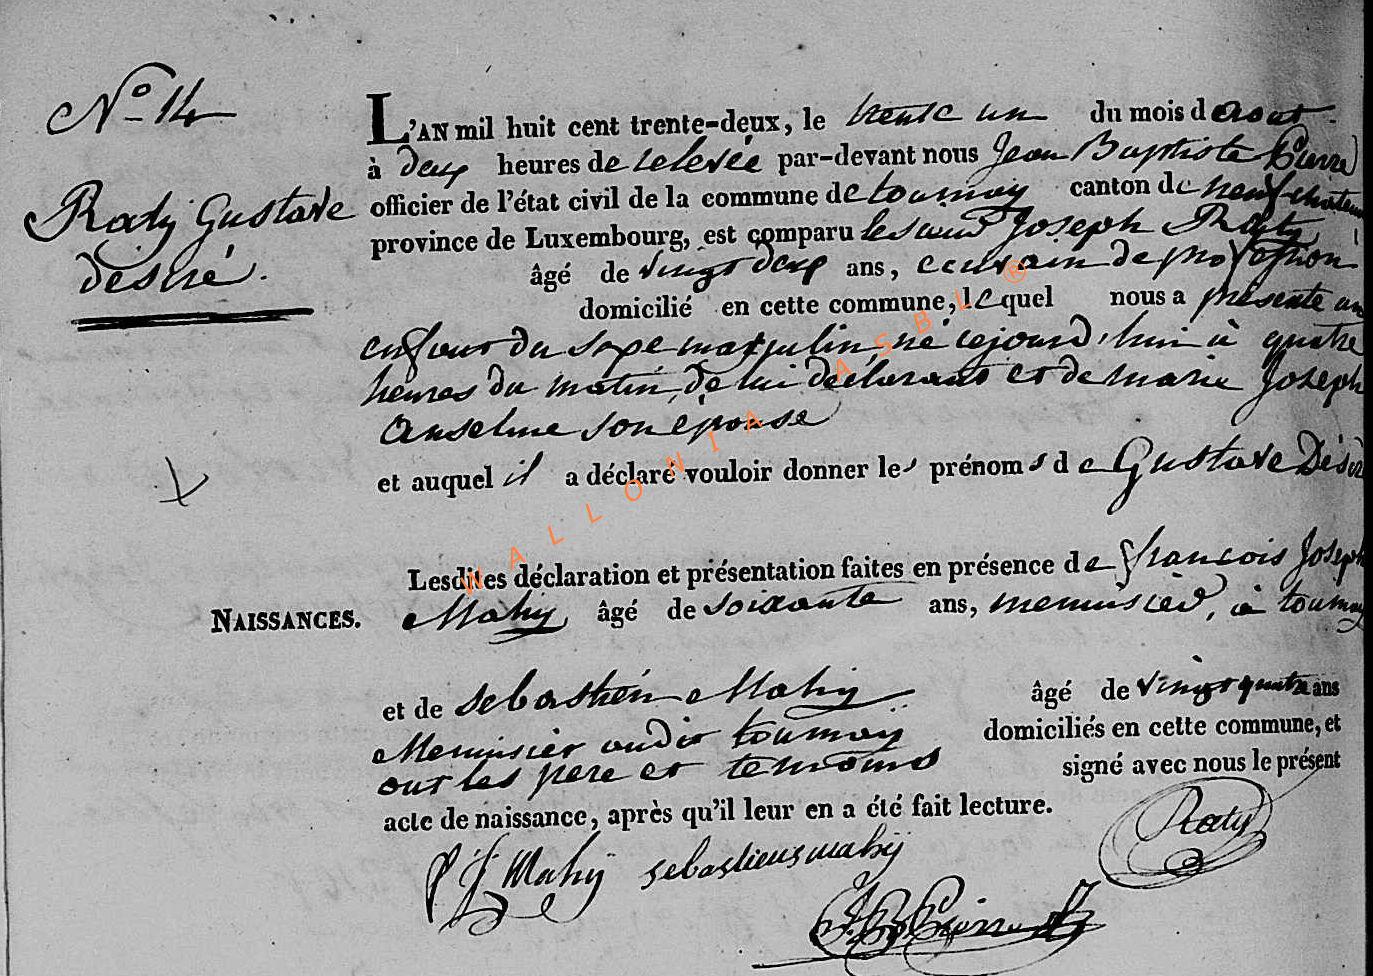 N° 14
Raty Gustave
désiré.
L'AN mil huit cent trente-deux, le trente un du mois d'aout
à deux heures de relevée par-devant nous Jean Baptiste Pierre
officier de l'état civil de la commune de tournay canton de neufchateau
province de Luxembourg, est comparu le sieur Joseph Raty
âgé de vingt deux ans, ecrivain de profession
domicilié en cette commune, lequel nous a présenté un
enfant du sexe masculin, né cejourd'hui à quatre
heures du matin, de lui déclarant et de marie Joseph
Anselme son épouse
et auquel il a déclaré vouloir donner les prénoms de Gustave Désiré
Lesdites déclaration et présentation faites en présence de françois Joseph
NAISSANCES. Mahy âgé de soixante ans, menuisier, à tournay
et de sebastien Mahy âgé de vingt quatre ans
Menuisier audit tournay domiciliés en cette commune, et
ont les pere et temoins signé avec nous le présent
acte de naissance, après qu'il leur en a été fait lecture.
Raty
f j Mahÿ sebastiens mahij
J. B. Pierre
WALLONIA ASBL ®